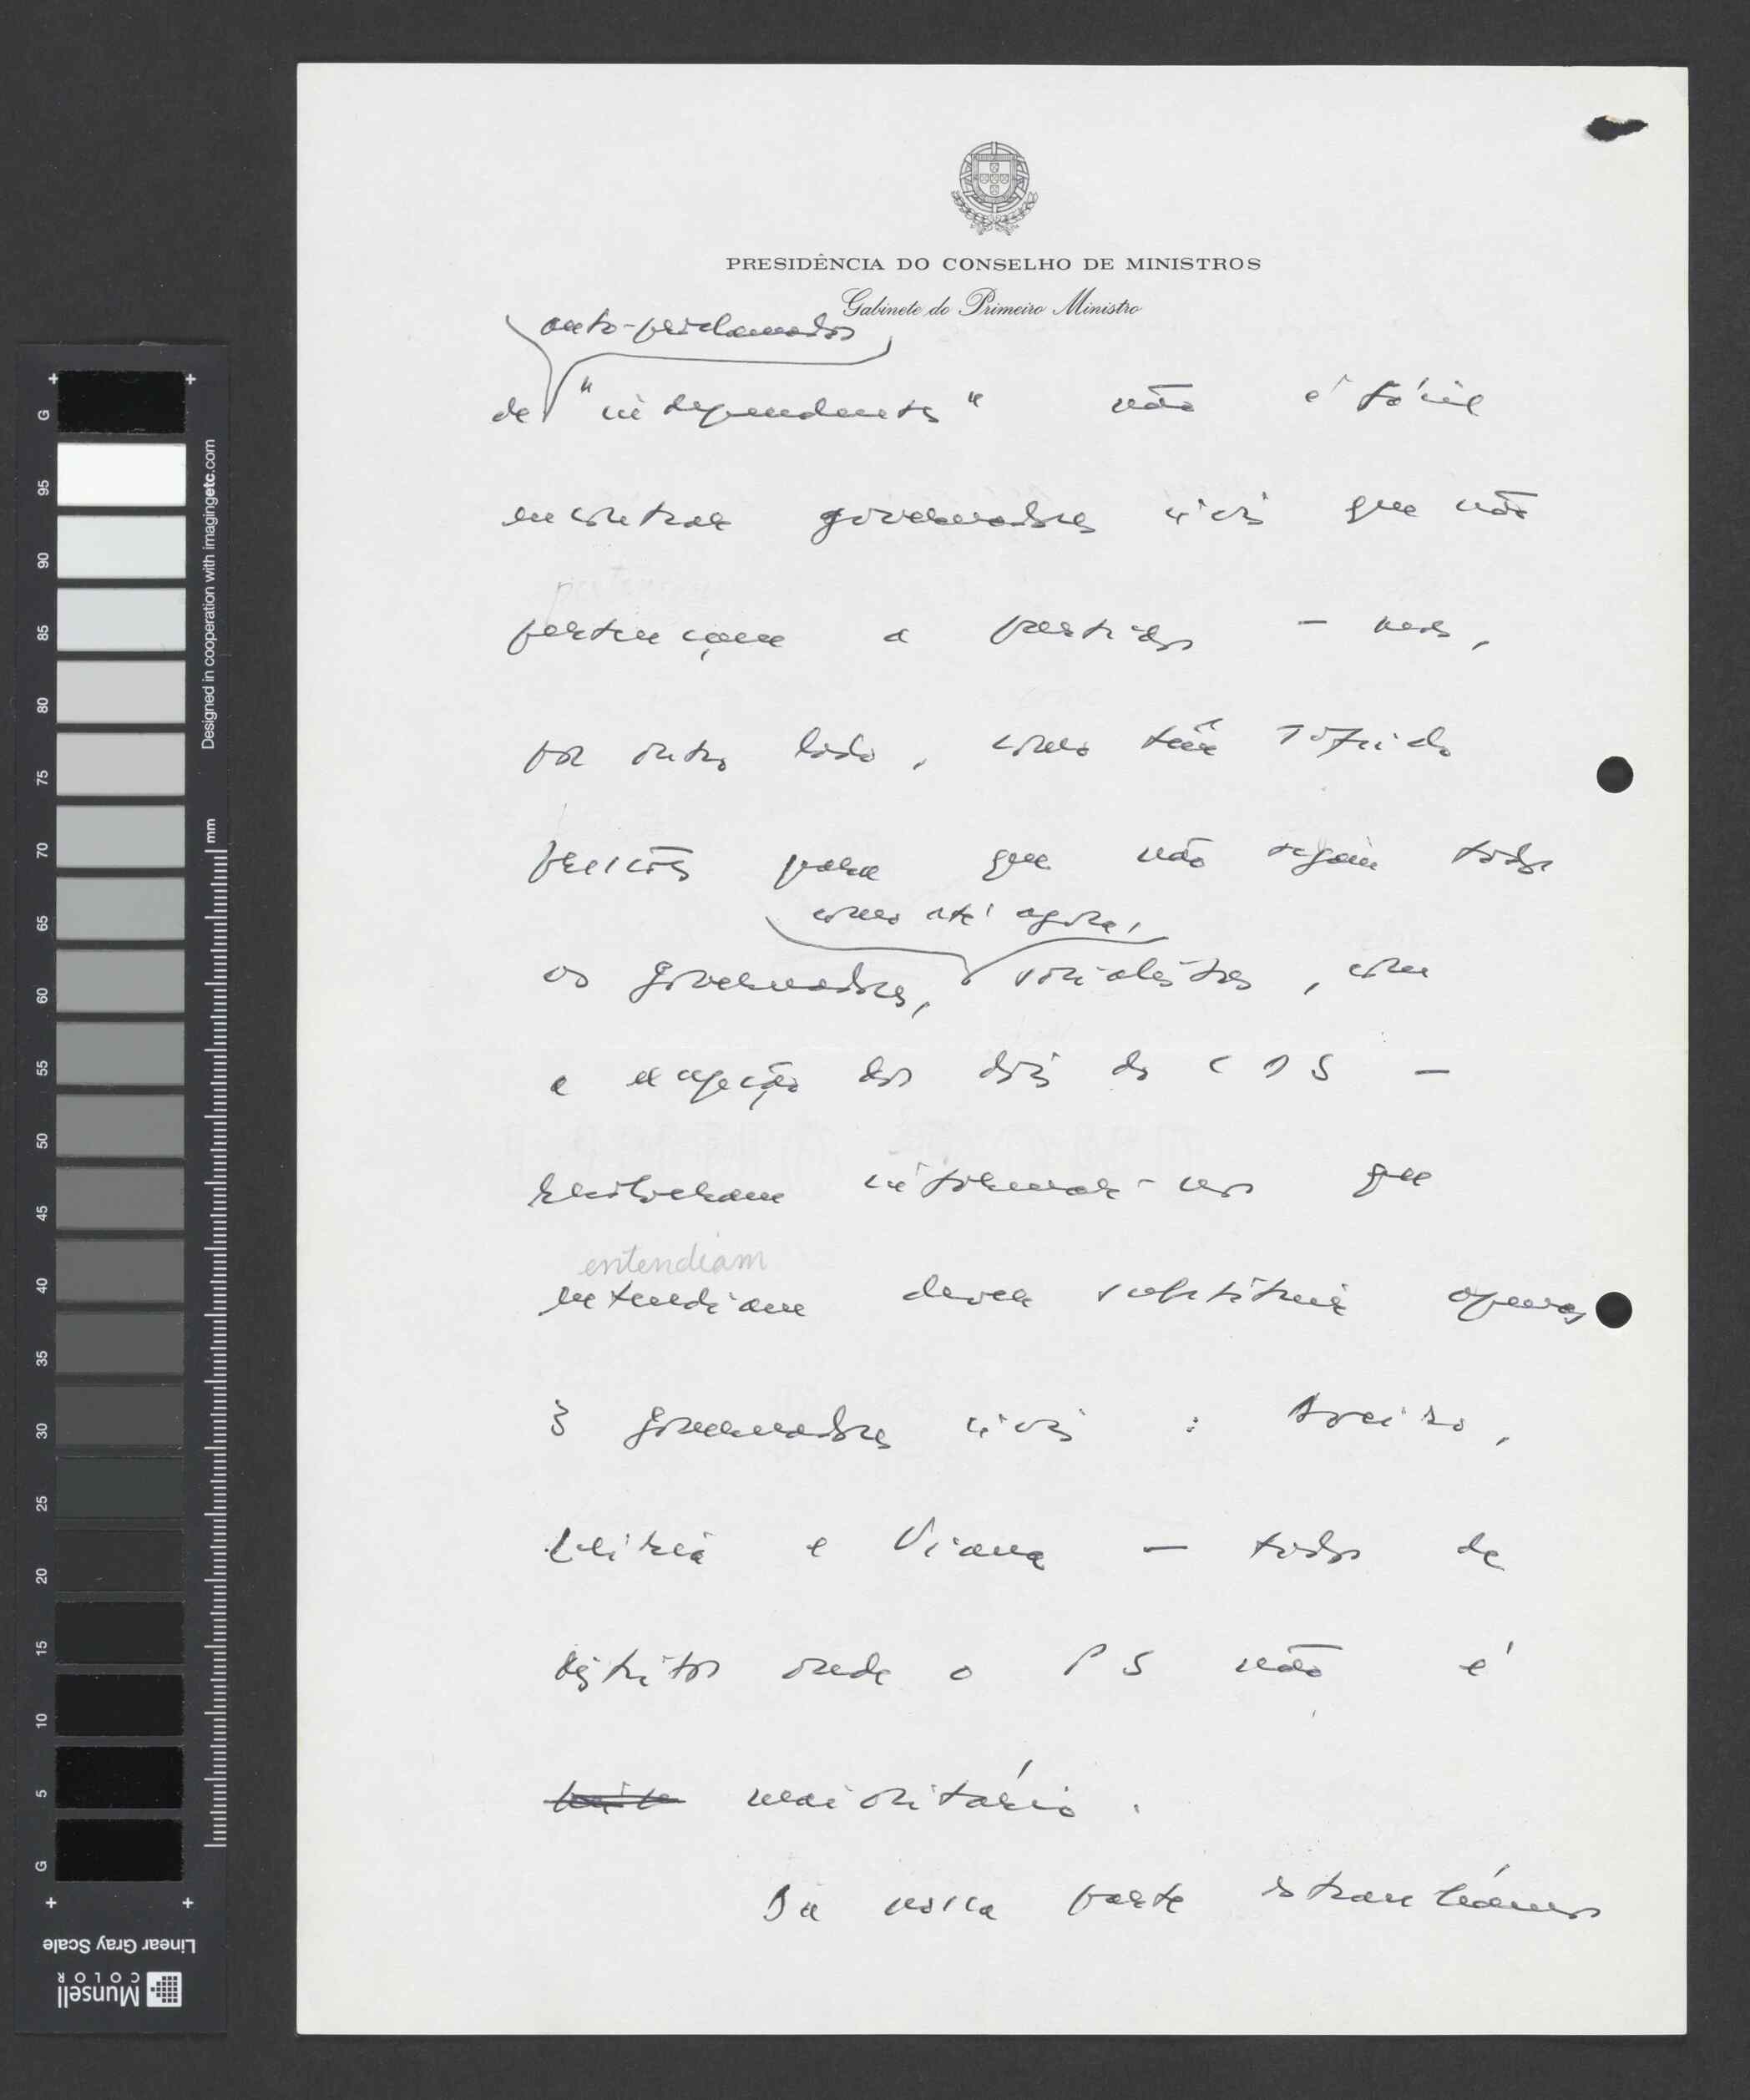 PRESIDÊNCIA DO CONSELHO DE MINISTROS
Gabinete do Primeiro Ministro
auto-proclamados
de "independentes" não é fácil
encontrar governadores civis que não
pertençam a partidos — mas,
por outro lado, como têm sofrido
pressões para que não sejam todos
como até agora,
os governadores, socialistas, com
a excepção dos dois do CDS —
resolveram informar-nos que
entendiam
entendiam dever substituir apenas
3 governadores civis : Aveiro,
Leiria e Viana — todos de
distritos onde o PS não é
maioritário.
Da nossa parte estranhámos
G 95 90 85 80 75 70 65 60 55 50 45 40 35 30 25 20 15 10 5 G
Designed in cooperation with imagingetc.com
mm
Linear Gray Scale
Munsell
COLOR